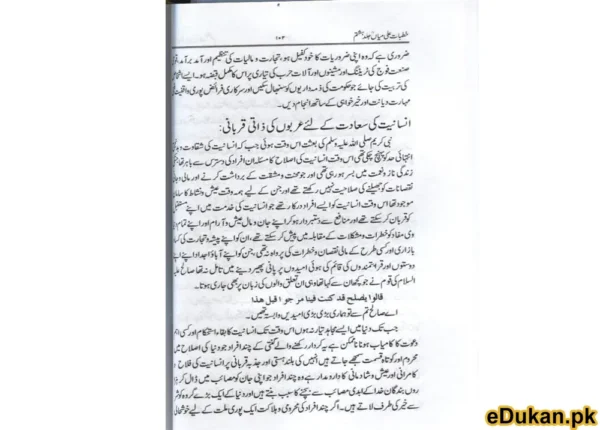 خطبات علی میاںؒ جلد ہشتم ۱۰۳
ضروری ہے کہ وہ اپنی ضروریات کا خود کفیل ہو، تجارت و مالیات کی تنظیم اور آمد برآمد
صنعت فوج کی ٹریننگ اور مشینوں اور آلات حرب کی تیاری پر اس کا مکمل قبضہ ہو۔ ایسے
کی تربیت کی جائے جو حکومت کی ذمہ داریوں کو سنبھال سکیں اور سرکاری فرائض پوری
مہارت دیانت اور خیر خواہی کے ساتھ انجام دیں۔
انسانیت کی سعادت کے لئے عربوں کی ذاتی قربانی:
نبی کریم صلی اللہ علیہ وسلم کی بعثت اس وقت ہوئی جب کہ انسانیت کی شقاوت و
انتہائی حد کو پہنچ چکی تھی اس وقت انسانیت کی اصلاح کا مسئلہ ان افراد کی دسترس سے باہر تھا
زندگی ناز و نعمت میں بسر ہو رہی تھی اور جو محنت و مشقت کے برداشت کرنے اور مالی و
نقصانات کو جھیلنے کی صلاحیت نہیں رکھتے تھے اور جن کے لیے ہمہ وقت عیش و نشاط کا
موجود تھا اس وقت انسانیت کو ایسے افراد درکار تھے جو انسانیت کی خدمت میں اپنے
کو قربان کر سکتے تھے اور منافع سے دستبردار ہو کر اپنے جان و مال عیش و آرام اور اپنے تمام
وی مفاد کو خطرات و مشکلات کے مقابلہ میں پیش کر سکتے تھے، ان کو اپنے پیشہ و تجارت کی
بازاری اور کسی طرح کے مالی نقصان و خطرات کی پرواہ نہ تھی، جن کو اپنے آباؤ اجداد اپنے
دوستوں اور قرابتمندوں کی قائم کی ہوئی امیدوں پر پانی پھیر دینے میں تامل نہ تھا صالح
السلام کی قوم نے جو کچھ ان سے کہا تھا وہی ان تعلق والوں کی زبان پر بھی جاری ہوتا۔
قالوا یصلح قد کنت فینا مرجوا قبل هذا
اے صالح تم سے تو ہماری بڑی بڑی امیدیں وابستہ تھیں۔
جب تک دنیا میں ایسے مجاہد تیار نہ ہوں اس وقت تک انسانیت کا بقاء و استحکام اور کسی
دعوت کا کامیاب ہونا ناممکن ہے یہ کردار رکھنے والے گنتی کے چند افراد جو دنیا کی اصلاح میں
محروم اور کوتاہ قسمت سمجھے جاتے ہیں انہیں کی بلند ہستی اور جذبہ قربانی پر انسانیت کی فلاح
کامرانی اور عیش و شادمانی کا دارومدار ہے وہ چند افراد جو اپنی جان کو مصائب میں ڈال کر
روں بندگان خدا کے ابدی مصائب سے بچنے کا سبب بنتے ہیں اور دنیا کے ایک بڑے گروہ کو
سے خیر کی طرف لاتے ہیں۔ اگر چند افراد کی محرومی و ہلاکت ایک پوری ملت کے لیے
eDukan.pk